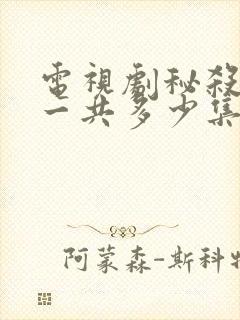 電視劇秘殺
一共多少集
阿蒙森-斯科特